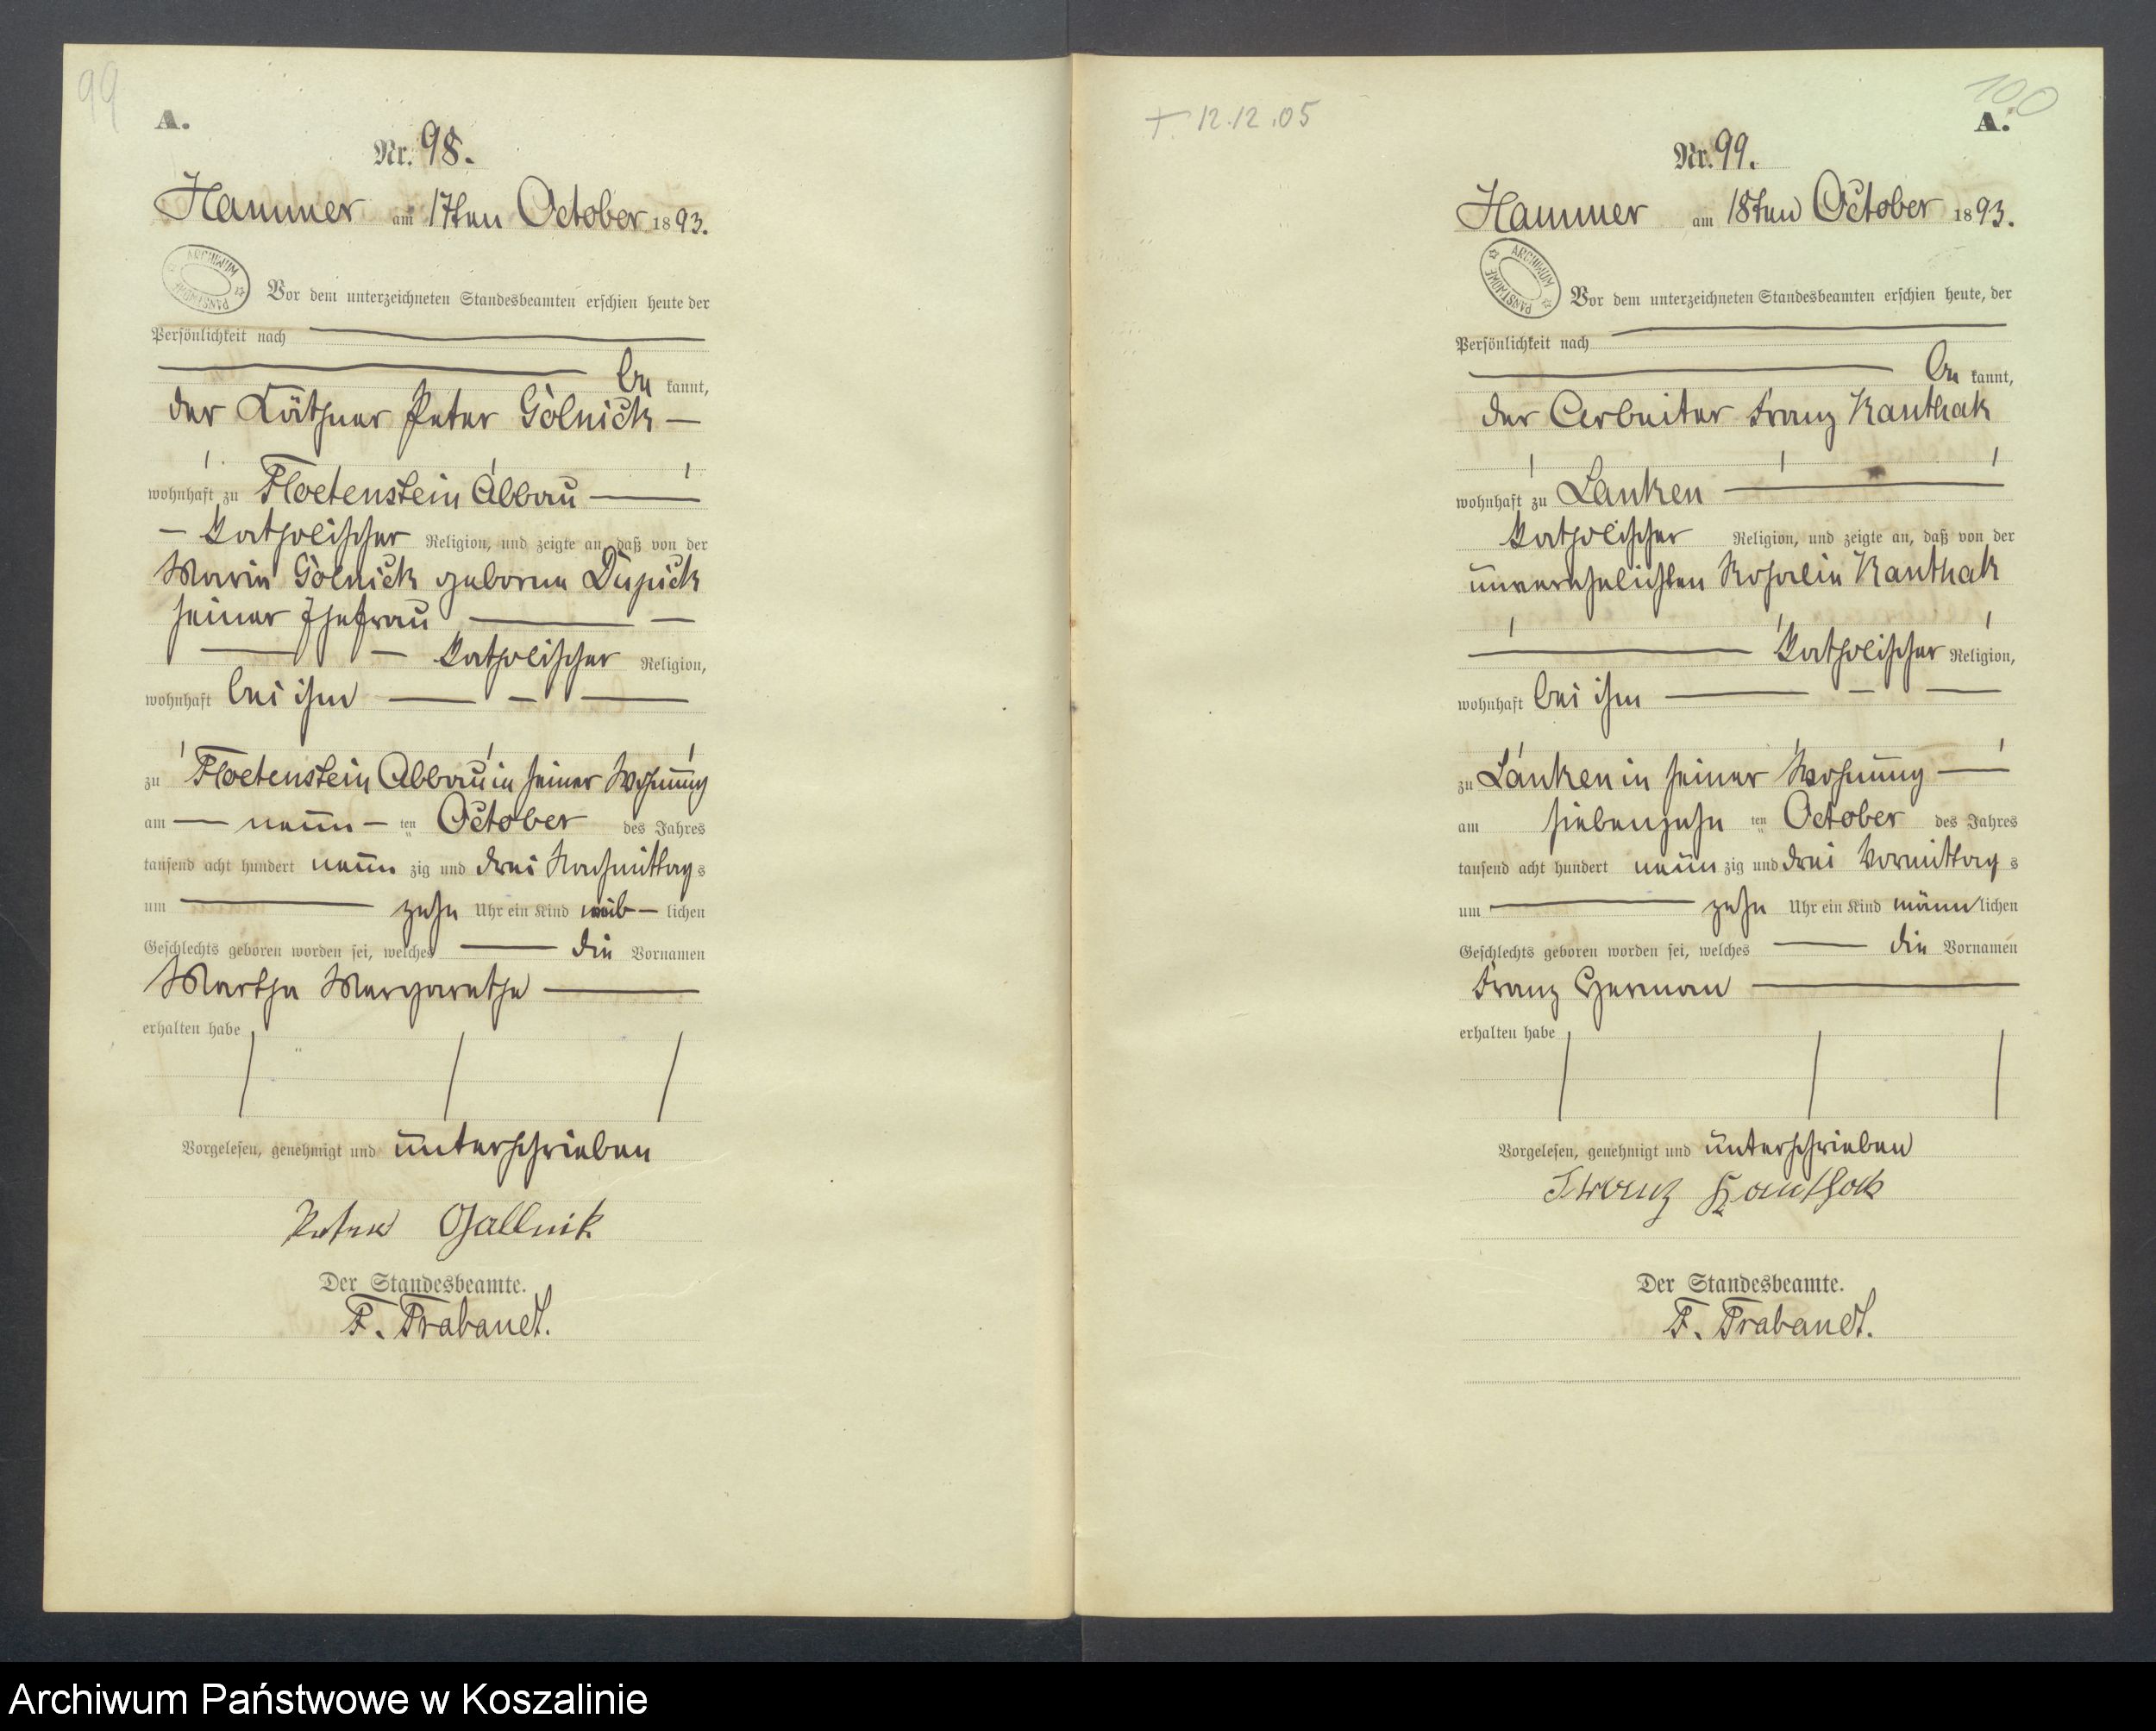 99
A.
Nr. 98.
Hammer am 17ten October 1893.
ARCHIWUM PAŃSTWOWE
Vor dem unterzeichneten Standesbeamten erschien heute der
Persönlichkeit nach
be kannt,
der Käthner Peter Golnick —
wohnhaft zu Floetenstein Abbau —
— katholischer Religion, und zeigte an, daß von der
Marie Golnick geborene Dupick
seiner Ehefrau —
— katholischer Religion,
wohnhaft bei ihm —
zu Floetenstein Abbau in seiner Wohnung
am — neun — ten October des Jahres
tausend acht hundert neun zig und drei Nachmittag s
um — zehn Uhr ein Kind weib — lichen
Geschlechts geboren worden sei, welches — die Vornamen
Martha Margarethe —
erhalten habe
Vorgelesen, genehmigt und unterschrieben
Peter Gallnik
Der Standesbeamte.
F. Trabandt.
+ 12.12.05
100
A.
Nr. 99.
Hammer am 18ten October 1893.
ARCHIWUM PAŃSTWOWE
Vor dem unterzeichneten Standesbeamten erschien heute, der
Persönlichkeit nach
be kannt,
der Arbeiter Franz Kanthak
wohnhaft zu Lanken —
katholischer Religion, und zeigte an, daß von der
unverehelichten Rosalie Kanthak
— katholischer Religion,
wohnhaft bei ihm —
zu Lanken in seiner Wohnung —
am siebenzehn ten October des Jahres
tausend acht hundert neun zig und drei Vormittag s
um — zehn Uhr ein Kind männ lichen
Geschlechts geboren worden sei, welches — die Vornamen
Franz Herman —
erhalten habe
Vorgelesen, genehmigt und unterschrieben
Franz Kanthak
Der Standesbeamte.
F. Trabandt.
Archiwum Państwowe w Koszalinie